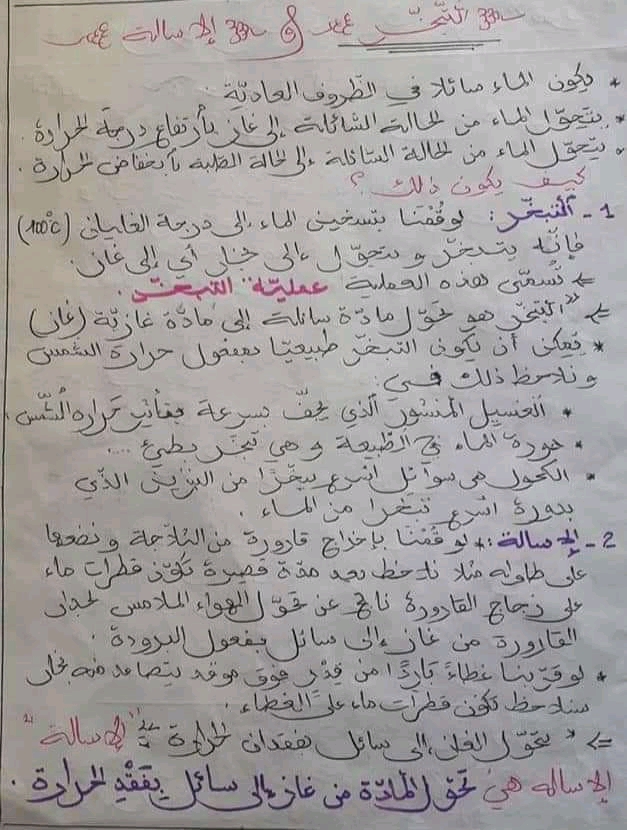 التبخّر و الإسالة
* يكون الماء سائلا في الظروف العاديّة.
* يتحوّل الماء من الحالة السّائلة إلى غاز بارتفاع درجة الحرارة.
* يتحوّل الماء من الحالة السائلة إلى الحالة الصّلبة بانخفاض الحرارة.
كيف يكون ذلك؟
1 - التبخّر: لو قُمْنا بتسخين الماء إلى درجة الغليان (100°C)
فإنّه يتبخّر و يتحوّل إلى بخار أي إلى غاز.
⇐ تُسمّى هذه العملية عمليّة التبخّر.
⇐ "التبخّر هو تحوّل مادّة سائلة إلى مادّة غازيّة (غاز)
* يمكن أن يكون التبخّر طبيعيّا بمفعول حرارة الشمس
و نلاحظ ذلك في:
* الغسيل المنشور الذي يجفّ بسرعة بتأثير حرارة الشّمس.
* دورة الماء في الطّبيعة و هي تبخّر بطيئ ....
* الكحول هي سوائل أسرع تبخّرا من البنزين الذي
بدوره أسرع تبخرا من الماء.
2 - الإسالة: * لو قمنا بإخراج قارورة من الثلاجة و نضعها
على طاولة مثلا نلاحظ بعد مدّة قصيرة تكوّن قطرات ماء
على زجاج القارورة ناتج عن تحوّل الهواء الملامس لجدار
القارورة من غاز إلى سائل بمفعول البرودة.
* لو قرّبنا غطاءً باردًا من قِدْر فوق موقد يتصاعد منه بخار
سنلاحظ تكوّن قطرات ماء على الغطاء.
⇐ * يتحوّل الغاز إلى سائل بفقدان الحرارة "الإسالة"
الإسالة هي تحوّل المادّة من غاز إلى سائل بفقد الحرارة.